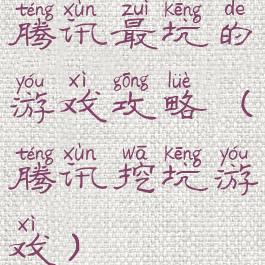 téng xùn zuì kēng de
腾讯最坑的
yóu xì gōng lüè
游戏攻略（
téng xùn wā kēng yóu
腾讯挖坑游
xì
戏）